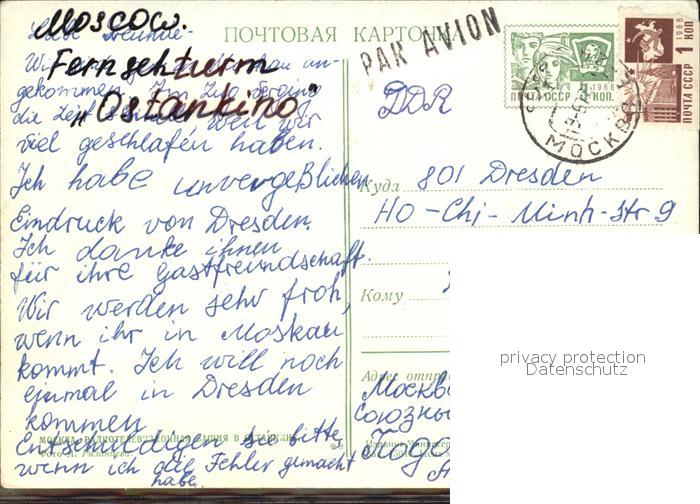 Moscow.
Fernsehturm
„Ostankino"
Liebe Freunde.
Wir
gekommen. Im Zug verging
die Zeit weil wir
viel geschlafen haben.
Ich habe unvergeßlichen
Eindruck von Dresden.
Ich danke ihnen
für ihre Gastfreundschaft.
Wir werden sehr froh,
wenn ihr in Moskau
kommt. Ich will noch
einmal in Dresden
kommen
Entschuldigen Sie bitte
wenn ich die Fehler gemacht
habe.
МОСКВА. РАДИОТЕЛЕВИЗИОННАЯ БАШНЯ В ОСТАНКИНО
Фото А. Рязанцева.
ПОЧТОВАЯ КАРТОЧКА
PAR AVION
1966
ПОЧТА СССР КОП.
1966
ПОЧТА СССР 1 КОП
МОСКВА
DDR
Куда 801 Dresden
HO-Chi-Minh-Str 9
Кому
Адрес отпра
Москва
Союзны
privacy protection
Datenschutz